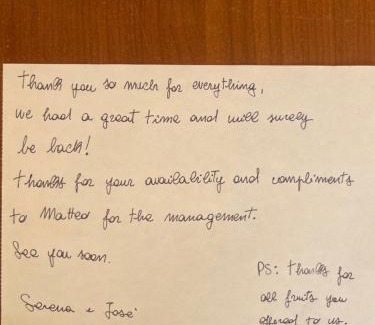 Thank you so much for everything,
we had a great time and will surely
be back!
Thanks for your availability and compliments
to Matteo for the management.
See you soon.
Serena e José
PS: thanks for
all fruits you
offered to us.